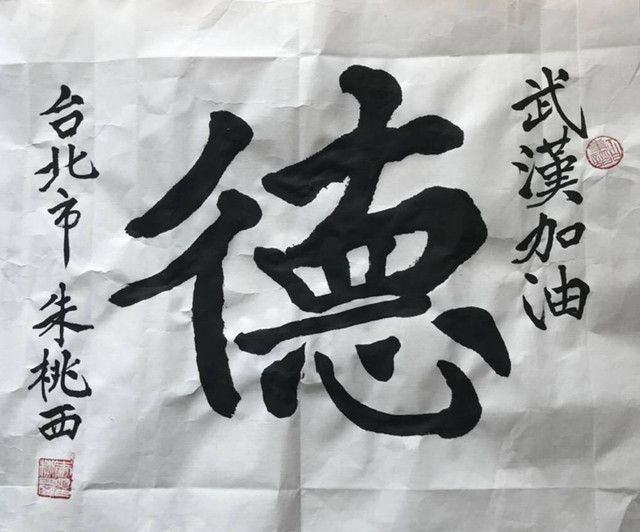 武漢加油
德
台北市 朱桃西